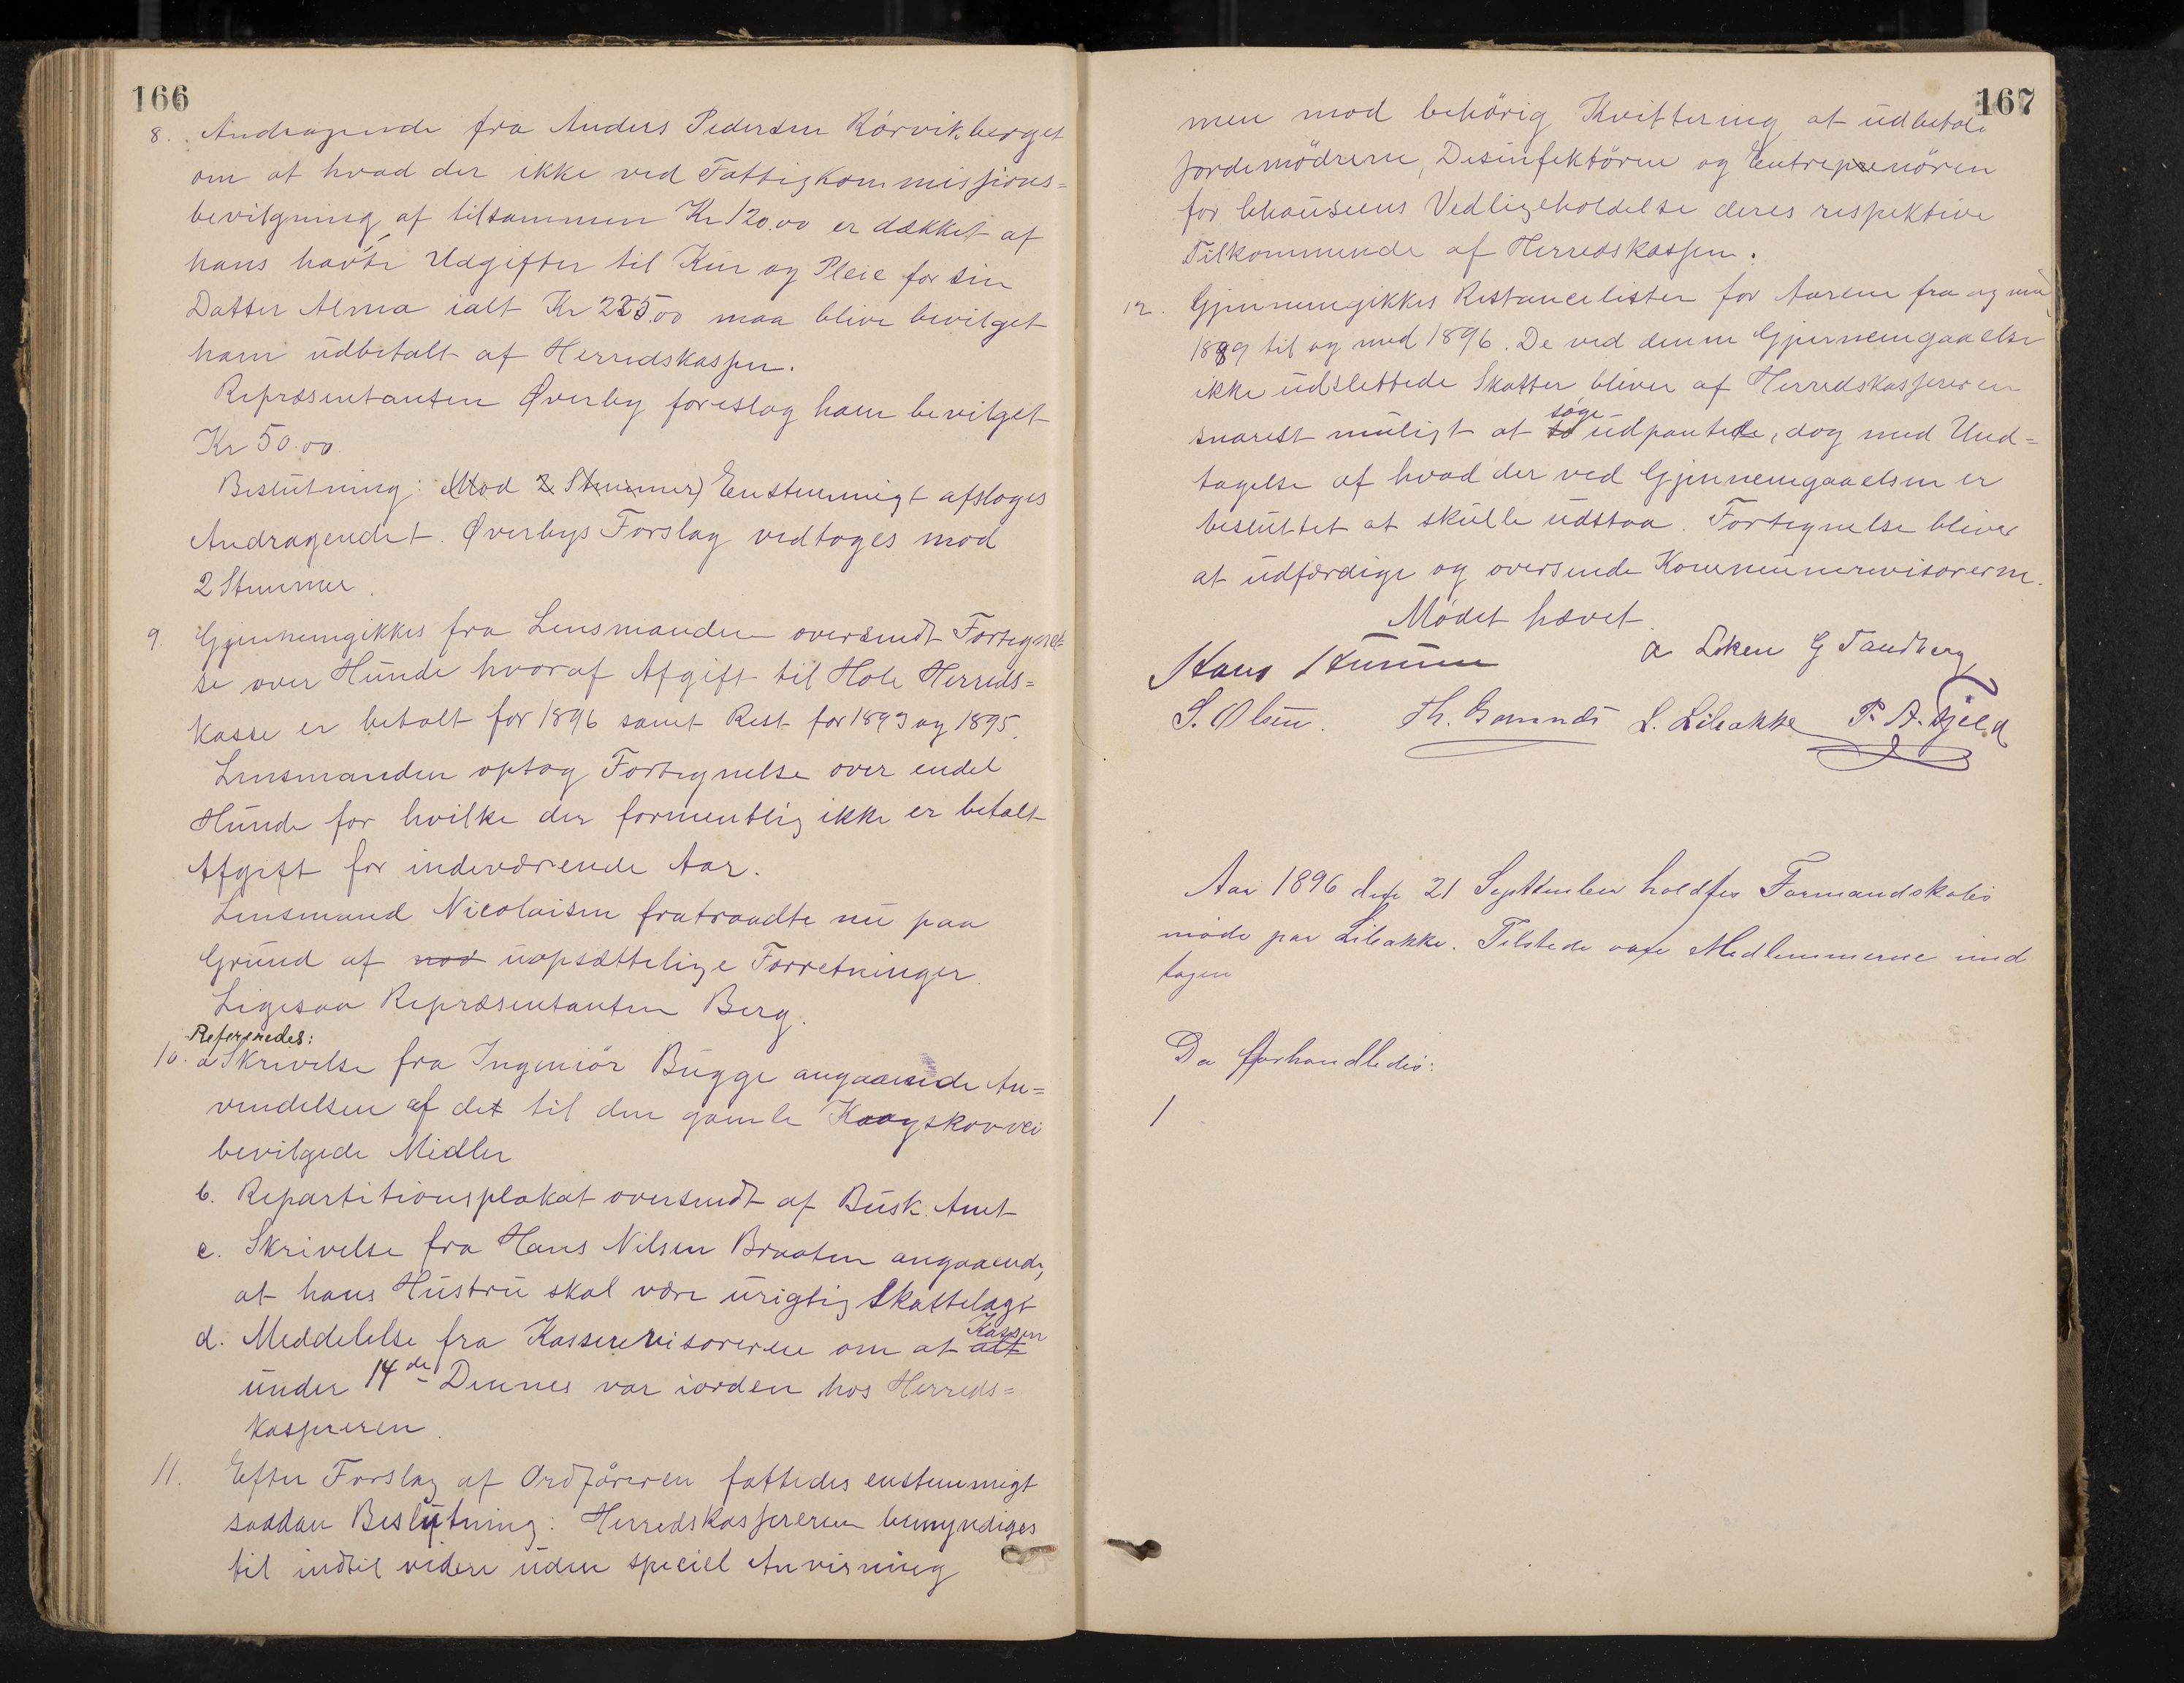 166
8. Andragende fra Anders Pedersen Rörvikberget
om at hvad der ikke ved Fattigkommissjons=
bevilgning af tilsammen Kr 120.00 er dækket af
hans havte Udgifter til Kur og Pleie for sin
Datter Alma ialt Kr 225.00 maa blive bevilget
ham udbetalt af Herredskassen.
Repræsentanten Øverby foreslog ham bevilget
Kr 50.00.
Beslutning: (Mod 2 Stemmer) Enstemmigt afsloges
Andragendet. Øverbys Forslag vedtoges mod
2 Stemmer.
9. Gjennemgikkes fra Lensmanden oversendt Fortegnel=
se over Hunde hvoraf Afgift til Hole Herreds=
kasse er betalt for 1896 samt Rest for 1893 og 1895.
Lensmanden optog Fortegnelse over endel
Hunde for hvilke der formentlig ikke er betalt
Afgift for indeværende Aar.
Lensmand Nicolaisen fratraadte nu paa
Grund af nod uopsættelige Forretninger.
Ligesaa Repræsentanten Berg.
Refereredes:
10. a Skrivelse fra Ingeniör Bugge angaaende An=
vendelsen af det til den gamle Krogskovvei
bevilgede Midler
b. Repartitionsplakat oversendt af Busk. Amt
c. Skrivelse fra Hans Nilsen Braaten angaaende,
at hans Hustru skal være urigtig Skattelagt
d. Meddelelse fra Kasserevisorerne om at alt Kassen
under 14de Dennes var iorden hos Herreds=
kasseren.
11. Efter Forslag af Ordföreren fattedes enstemmigt
saadan Beslutning: Herredskassereren bemyndiges
til indtil videre uden speciel Anvisning
167
men mod behörig Kvittering at udbetale
Jordemödrene, Desinfektörene og Entreprenören
for Vedligeholdelse deres respektive
Tilkommende af Herredskassen.
12. Gjennemgikkes Restancelisten for Aarene fra og med
1889 til og med 1896. De ved denne Gjennemgaaelse
ikke udslettede Skatter bliver af Herredskassereren
snarest muligt at söge udpantede, dog med Und=
tagelse af hvad der ved Gjennemgaaelsen er
besluttet at skulle udstaa. Fortegnelse bliver
at udfærdige og oversende Kommunerevisorerne.
Mödet hævet.
Hans A Løken G Tandberg
S. Olsen. Th. L. Libakke P. A. Fjeld
Aar 1896 den 21 September holdtes Formandskabs
möde paa Libakke. Tilstede vare Medlemmerne und
tagen
Da forhandledes:
1